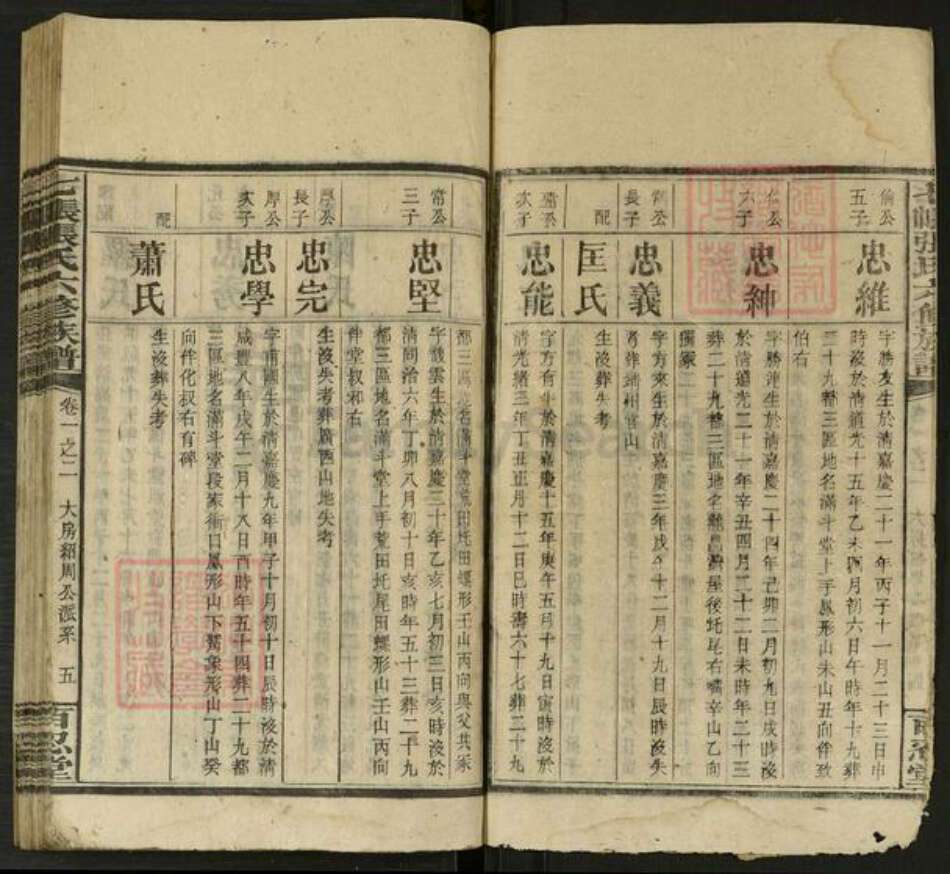 倫公
五子
忠維
字勝友生於清嘉慶二十一年丙子十一月二十三日申
時歿於清道光十五年乙未四月初六日午時年十九葬
三十九都三區地名滿斗堂上手鳳形山未山丑向伴致
伯右
公
六子
忠紳
字勝迎生於清嘉慶二十四年己卯二月初九日戌時歿
於清道光二十一年辛丑四月二十二日未時年二十三
葬二十九都三區地名 屋後圫尾右嘴辛山乙向
塚
公
長子
忠義
字方來生於清嘉慶三年戊午十二月十九日辰時歿失
考葬靖州官山
配
匡氏
生歿葬失考
常公
次子
忠能
字方有生於清嘉慶十五年庚午五月十九日寅時歿於
清光緒三年丁丑正月十二日巳時壽六十七葬二十九
都三區地名滿斗堂荒田圫田螺形壬山丙向與父共塚
常公
三子
忠堅
字戲雲生於清嘉慶二十年乙亥七月初三日亥時歿於
清同治六年丁卯八月初十日亥時年五十三葬二十九
都三區地名滿斗堂上手荒田圫尾田螺形山壬山丙向
伴堂叔和右
厚公
長子
忠完
生歿失考葬廣西山地失考
厚公
次子
忠學
字甫國生於清嘉慶九年甲子十月初十日辰時歿於清
咸豐八年戊午二月十八日酉時年五十四葬二十九都
三區地名滿斗堂段家衝口鳳形山下獅象形山丁山癸
向伴化叔右有碑
配
蕭氏
生歿葬失考
七脹張氏六修族譜
卷一之二
大房紹周公派系
五
百忍堂